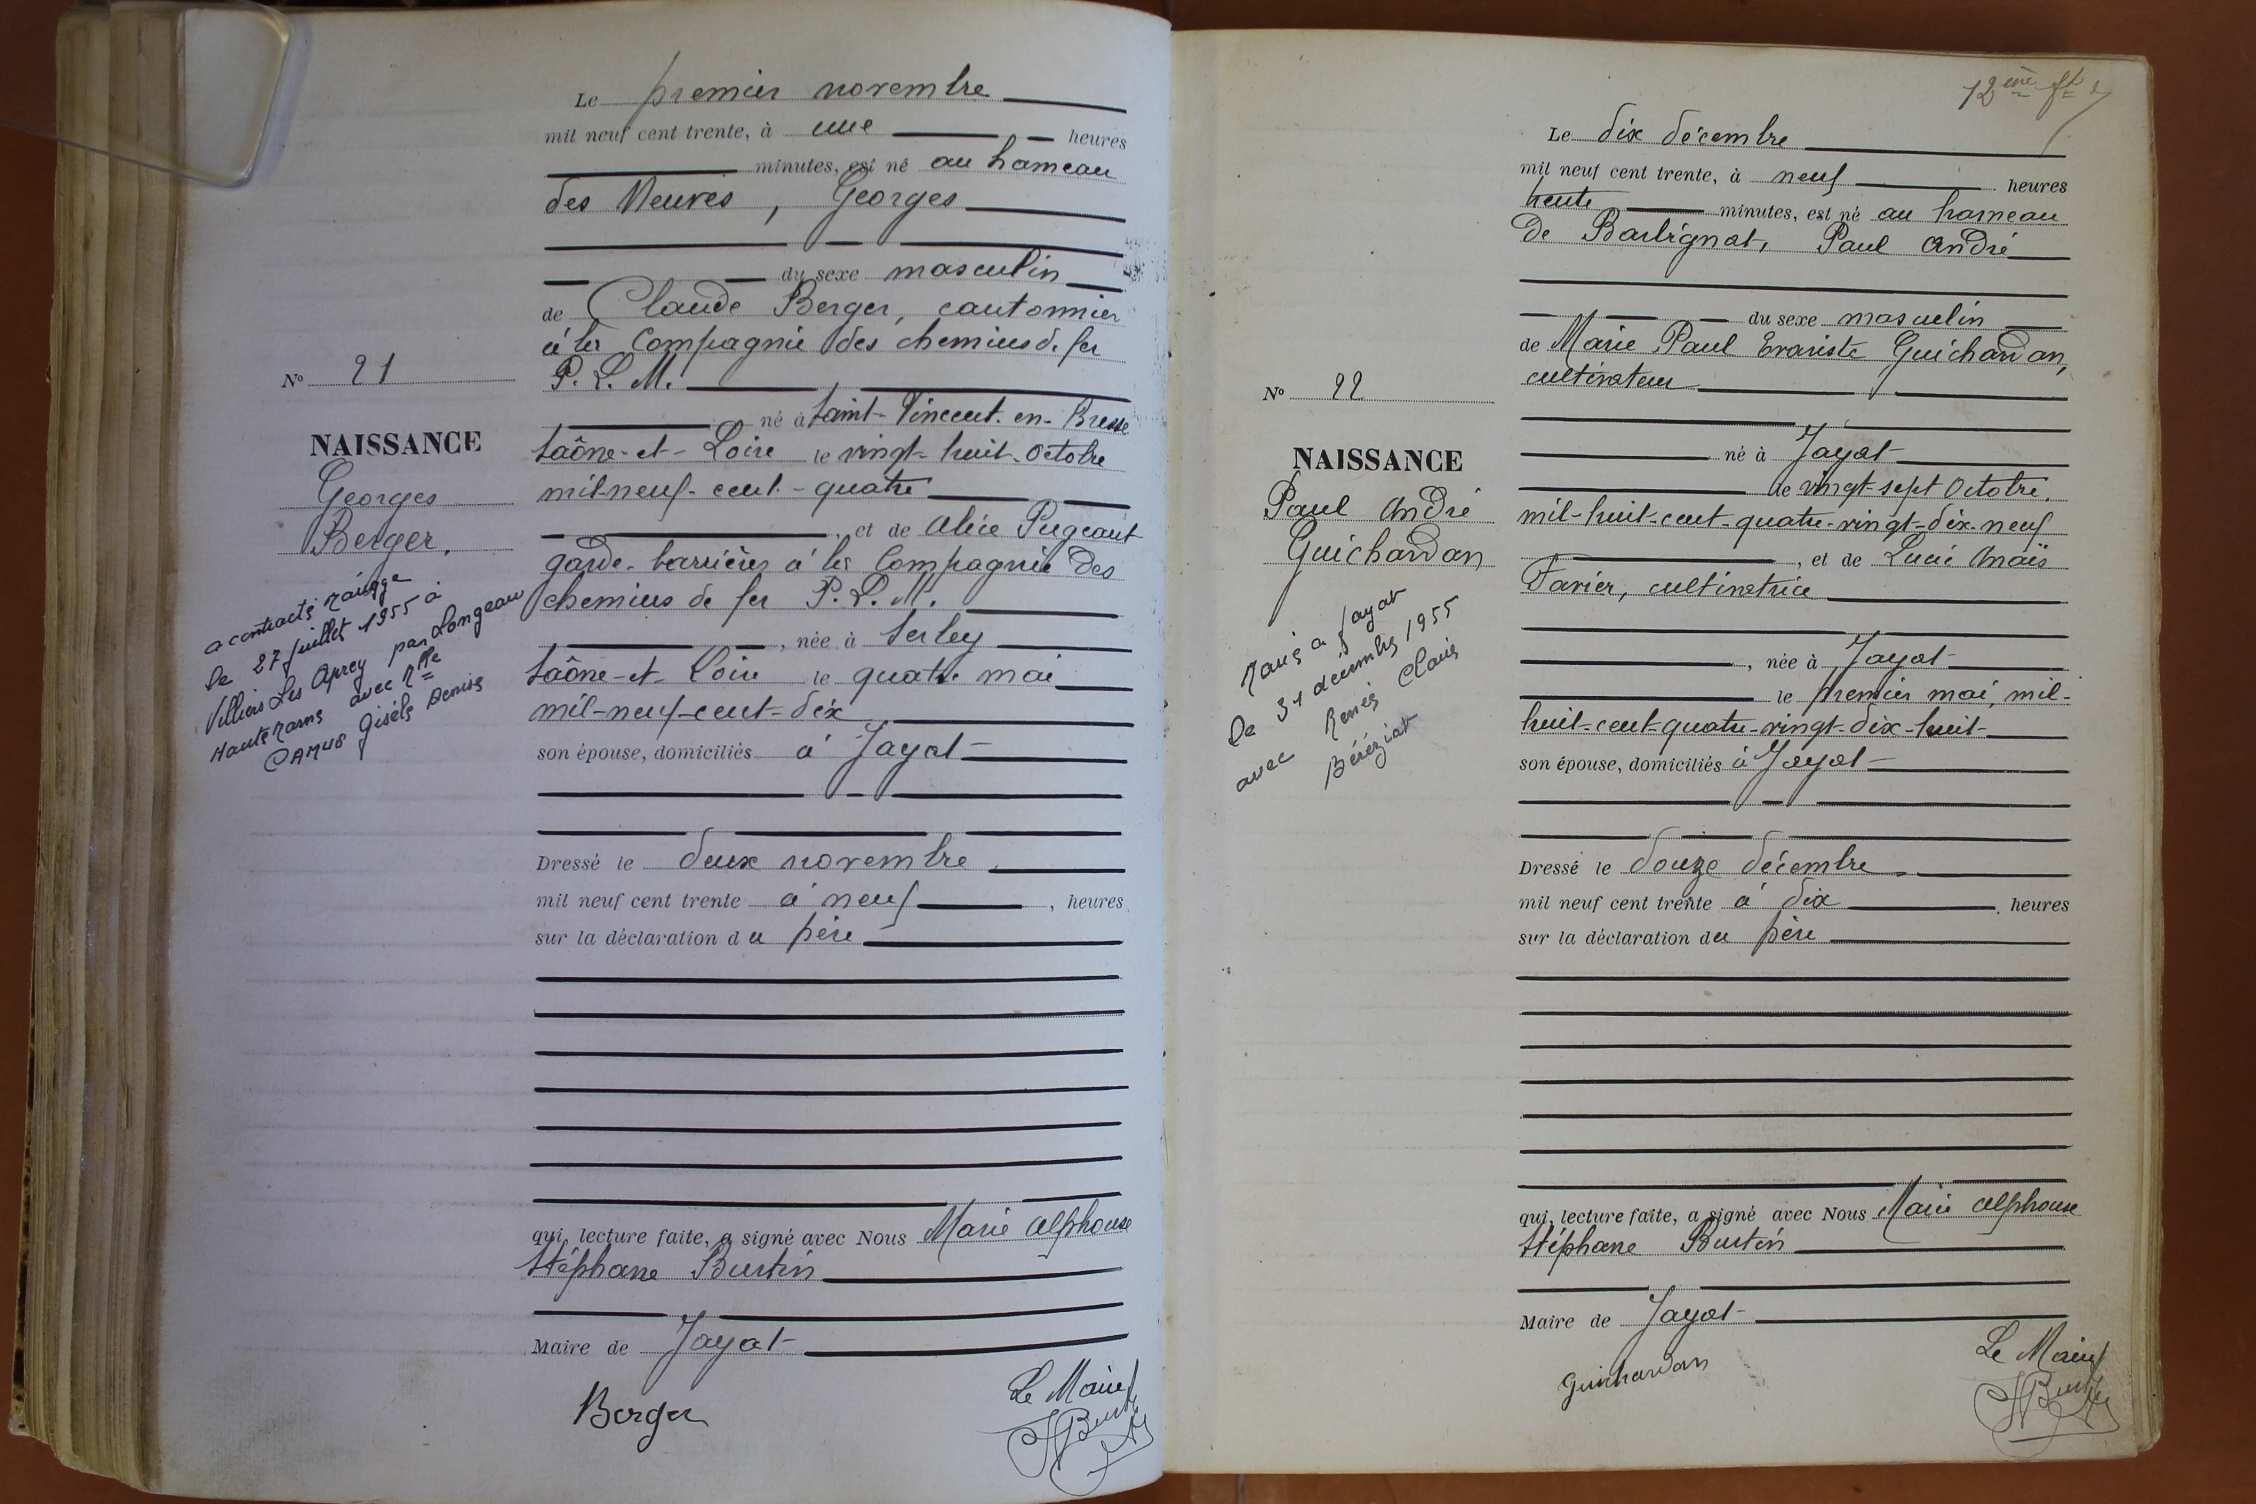 Le premier novembre
mil neuf cent trente, à une heures
minutes, est né au hameau
des Meures, Georges
du sexe masculin
de Claude Berger, cantonnier
à la Compagnie des chemins de fer
P. L. M.
né à Saint-Vincent-en-Bresse
Saône-et-Loire le vingt-huit-Octobre
mil-neuf-cent-quatre
, et de Alice Pugeaut
garde-barrières à la Compagnie des
chemins de fer P. L. M.
, née à Serley
Saône-et-Loire le quatre mai
mil-neuf-cent-dix
son épouse, domiciliés à Jayat
Dressé le deux novembre
mil neuf cent trente à neuf, heures
sur la déclaration du père
qui, lecture faite, a signé avec Nous Marie Alphonse
Stéphane Burtin
Maire de Jayat
Le Maire
Berger
N° 21
NAISSANCE
Georges
Berger.
a contracté mariage
le 27 juillet 1955 à
Villiers Les Aprey par Longeau
Haute Marne avec Mlle
CAMUS Gisèle Denise
12ème ft
Le dix décembre
mil neuf cent trente, à neuf heures
trente minutes, est né au hameau
de Barbignat, Paul André
du sexe masculin
de Marie Paul Evariste Guichardan,
cultivateur
né à Jayat
le vingt-sept Octobre
mil-huit-cent-quatre-vingt-dix-neuf
, et de Lucie Anaïs
Favier, cultivatrice
, née à Jayat
le premier mai, mil-
huit-cent-quatre-vingt-dix-huit
son épouse, domiciliés à Jayat
Dressé le douze décembre
mil neuf cent trente à dix heures
sur la déclaration du père
qui, lecture faite, a signé avec Nous Marie Alphonse
Stéphane Burtin
Maire de Jayat
Le Maire
Guichardan
N° 22
NAISSANCE
Paul André
Guichardan
Marié à Jayat
le 31 décembre 1955
avec Renée Claire
Béréziat